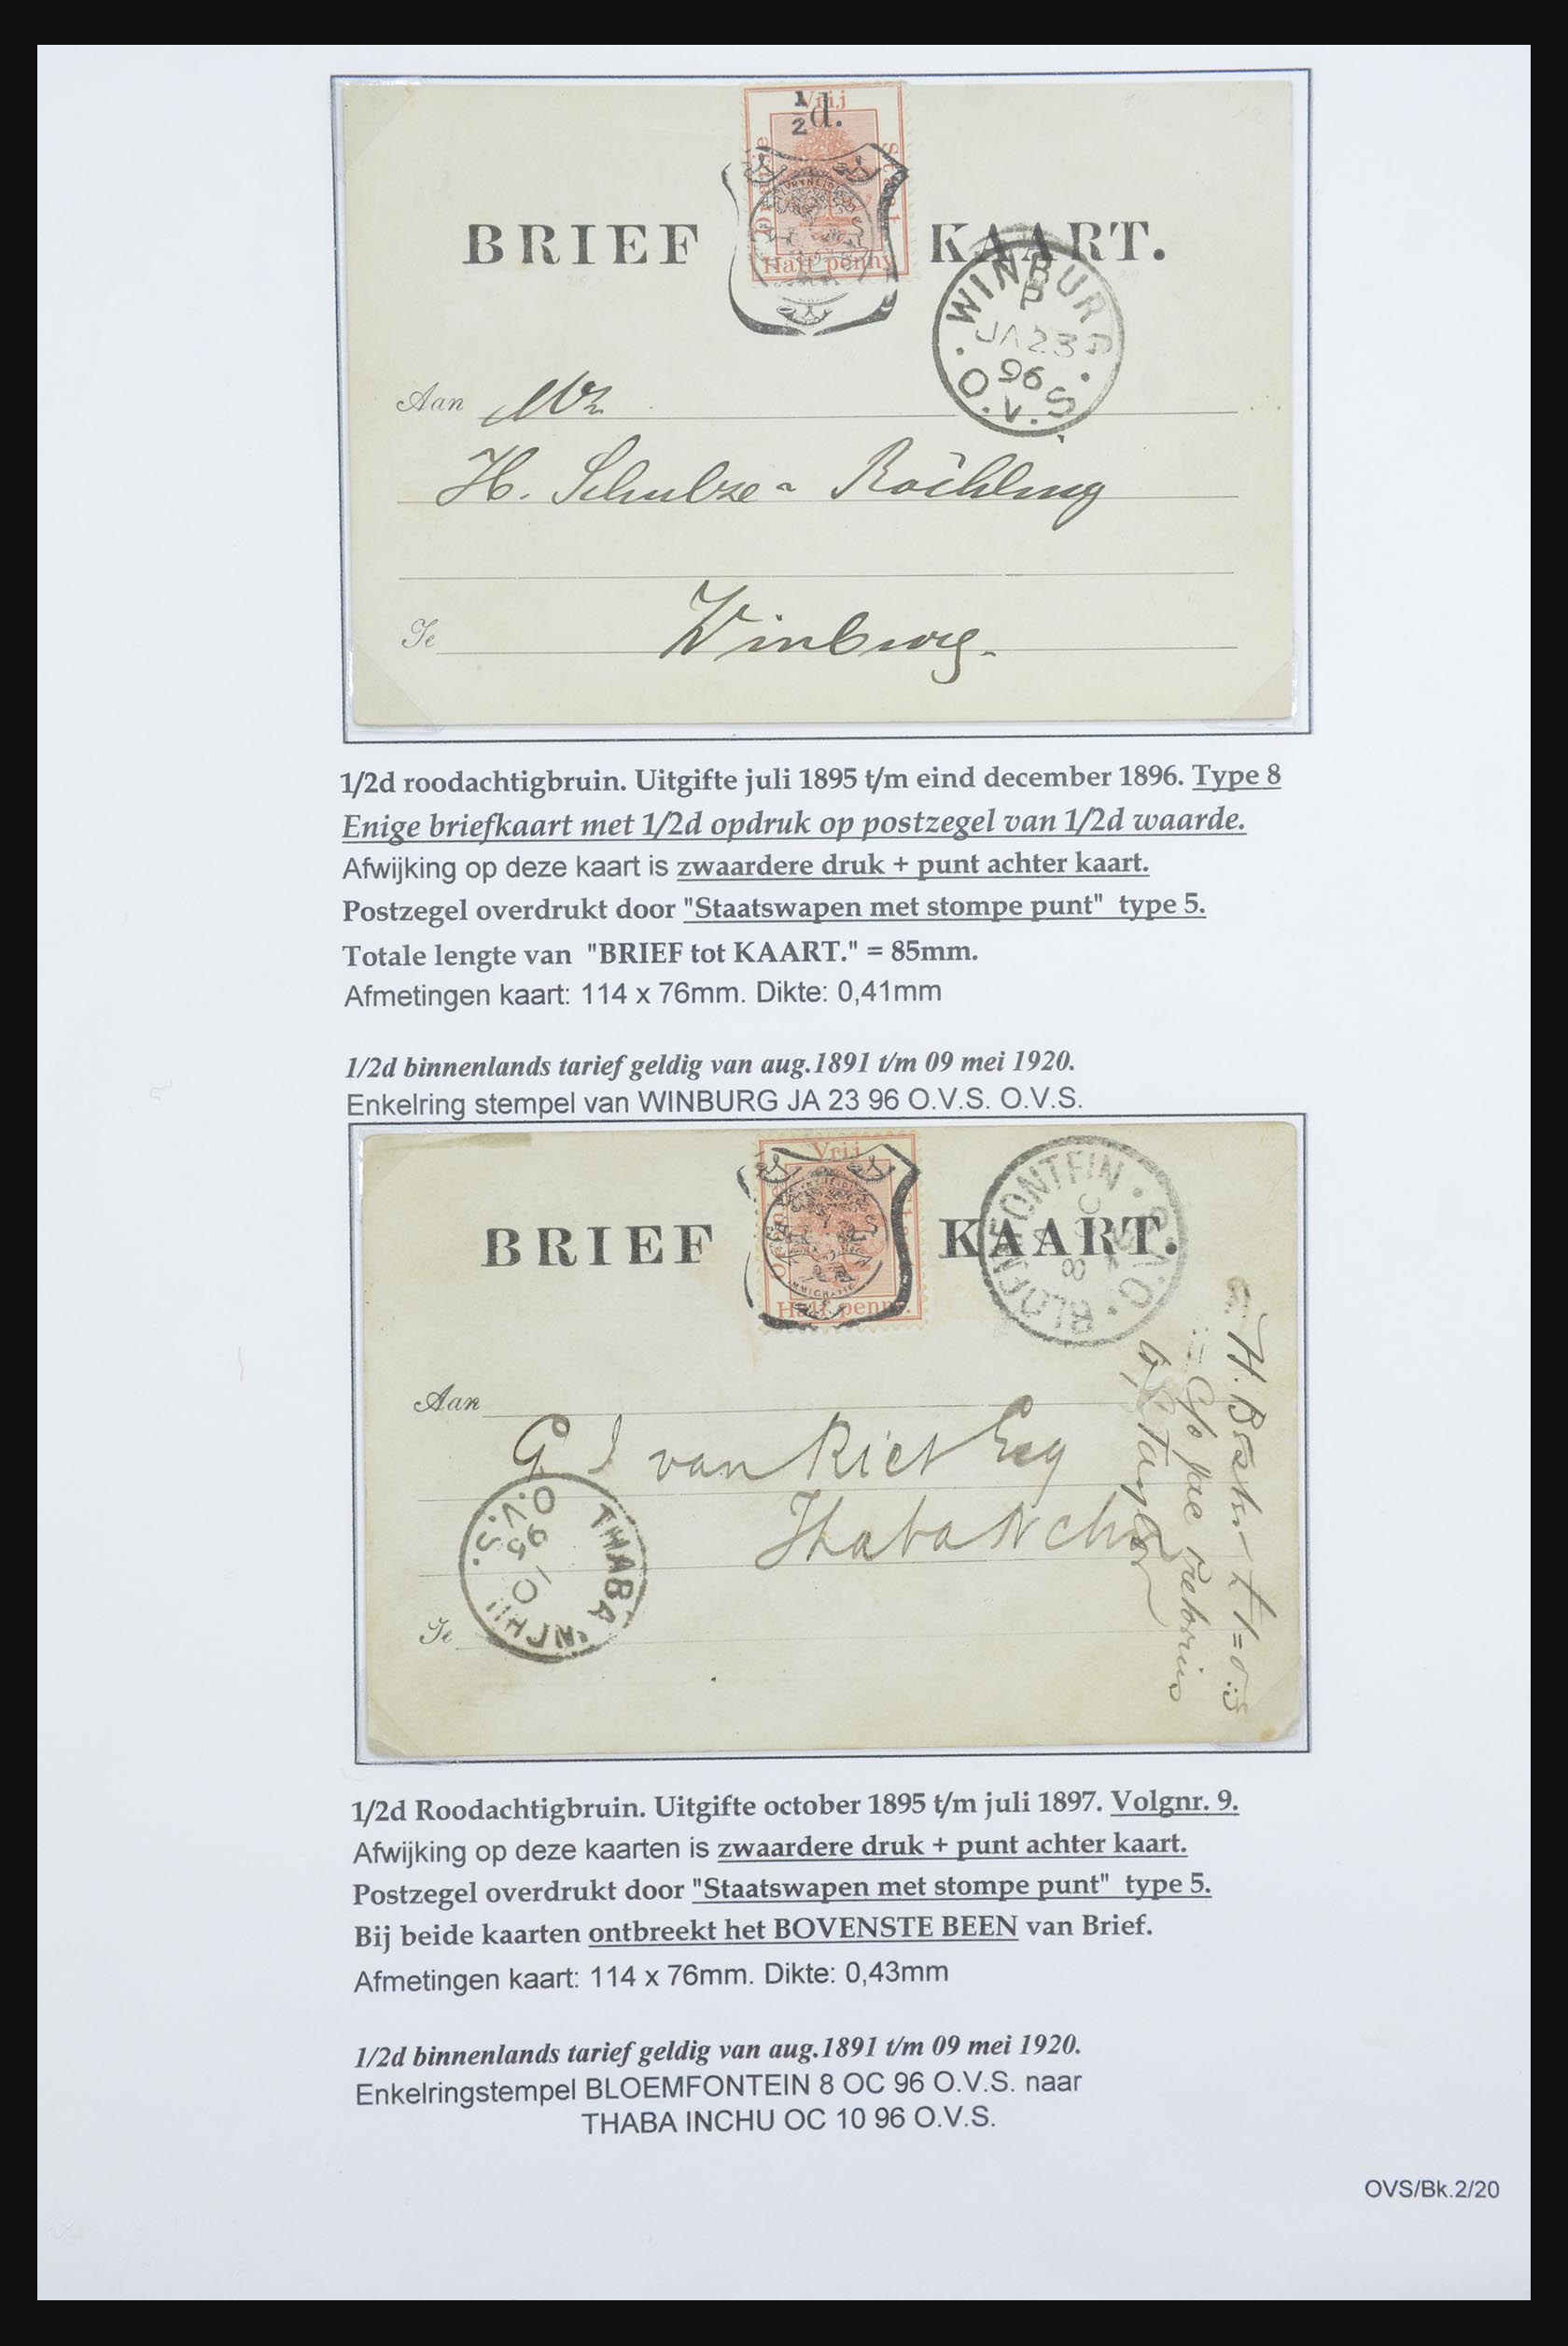 ½d.
Vrij
Half penny
BRIEF KAART.
WINBURG
P
JA 23
96
O.V.S.
Aan Mr
H. Schulze-Röchling
Te Winburg.
1/2d roodachtigbruin. Uitgifte juli 1895 t/m eind december 1896. Type 8
Enige briefkaart met 1/2d opdruk op postzegel van 1/2d waarde.
Afwijking op deze kaart is zwaardere druk + punt achter kaart.
Postzegel overdrukt door "Staatswapen met stompe punt" type 5.
Totale lengte van "BRIEF tot KAART." = 85mm.
Afmetingen kaart: 114 x 76mm. Dikte: 0,41mm
1/2d binnenlands tarief geldig van aug.1891 t/m 09 mei 1920.
Enkelring stempel van WINBURG JA 23 96 O.V.S. O.V.S.
Vrij
Half penny.
BRIEF KAART.
Aan
G J van Riet Esq
Thaba Nchu
THABA 'NCHU
O.V.S.
Te
1/2d Roodachtigbruin. Uitgifte october 1895 t/m juli 1897. Volgnr. 9.
Afwijking op deze kaarten is zwaardere druk + punt achter kaart.
Postzegel overdrukt door "Staatswapen met stompe punt" type 5.
Bij beide kaarten ontbreekt het BOVENSTE BEEN van Brief.
Afmetingen kaart: 114 x 76mm. Dikte: 0,43mm
1/2d binnenlands tarief geldig van aug.1891 t/m 09 mei 1920.
Enkelringstempel BLOEMFONTEIN 8 OC 96 O.V.S. naar
THABA INCHU OC 10 96 O.V.S.
OVS/Bk.2/20